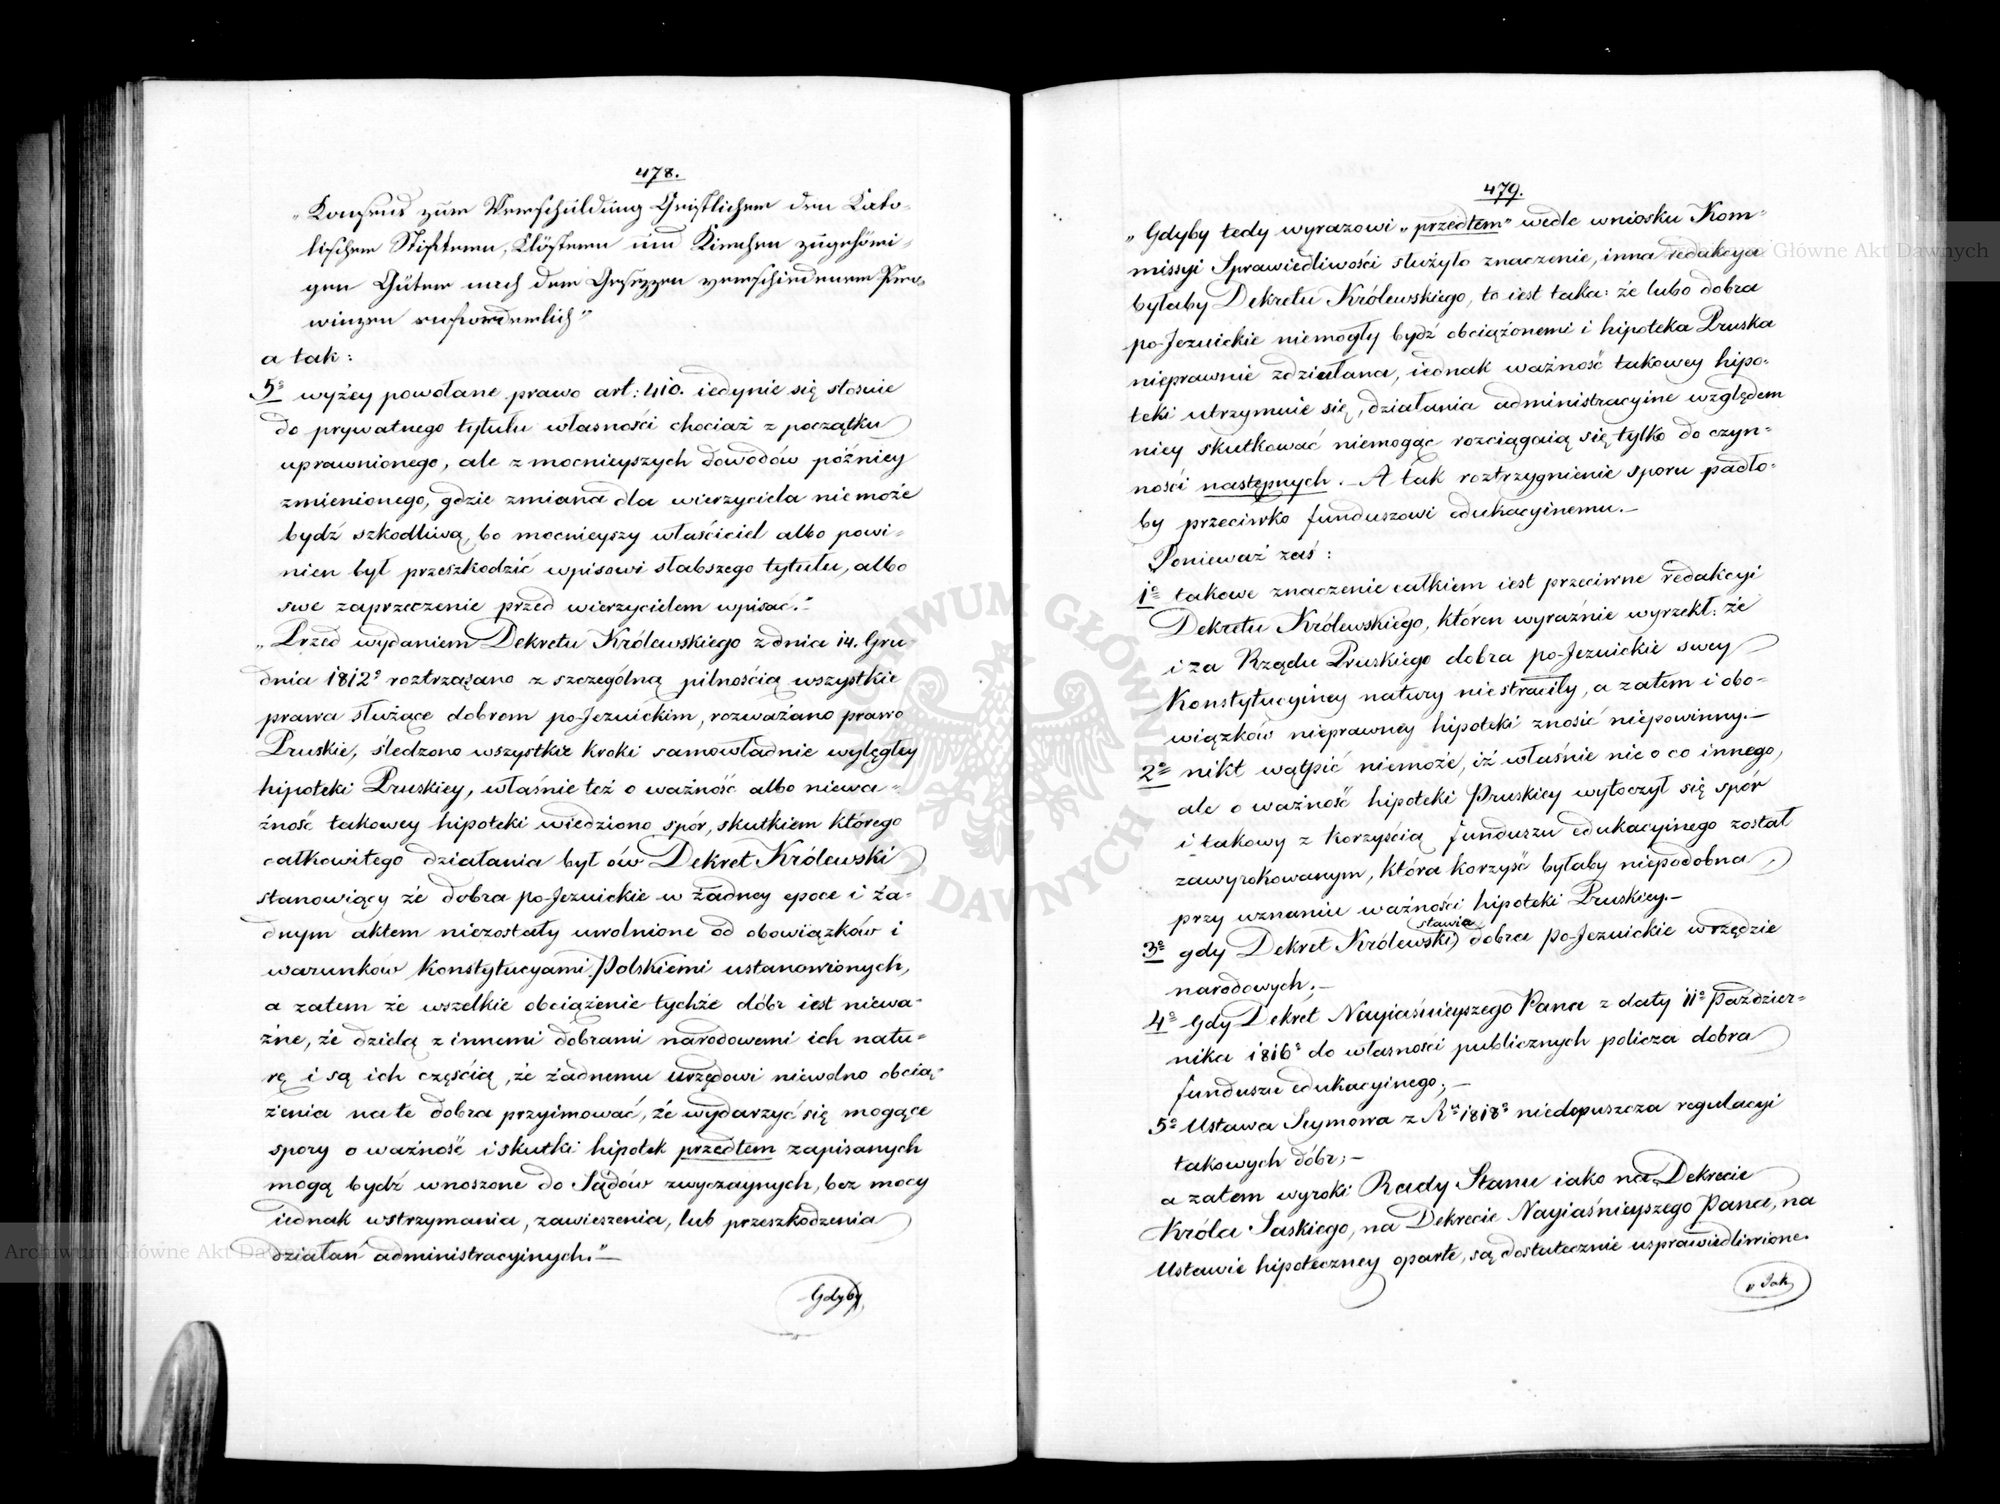 478.
„Konsens zur Verschuldung Geistlichen den Kato-
lischen Stiftern, Klöstern und Kirchen zugehöri-
gen Güter nach den Gesezzen verschiedener Pro-
winzen erforderlich”
a tak:
5o wyżey powołane prawo art: 410. iedynie się stosuie
do prywatnego tytułu własności chociaż z początku
uprawnionego, ale z mocnieyszych dowodów późniey
zmienionego, gdzie zmiana dla wierzyciela nie może
bydź szkodliwą, bo mocnieyszy właściciel albo powi-
nien był przeszkodzić wpisowi słabszego tytułu, albo
swe zaprzeczenie przed wierzycielem wpisać.”
„Przed wydaniem Dekretu Królewskiego z dnia 14. Gru-
dnia 1812o roztrząsano z szczególną pilnością wszystkie
prawa służące dobrom po-Jezuickim, rozważano prawo
Pruskie, śledzono wszystkie kroki samowładnie wylęgłey
hipoteki Pruskiey, właśnie też o ważność albo niewa-
żność takowey hipoteki wiedziono spór, skutkiem którego
całkowitego działania był ów Dekret Królewski
stanowiący że dobra po-Jezuickie w żadney epoce i ża-
dnym aktem niezostały uwolnione od obowiązków i
warunków Konstytucyami Polskiemi ustanowionych,
a zatem że wszelkie obciążenie tychże dóbr iest niewa-
żne, że dzielą z innemi dobrami narodowemi ich natu-
rę i są ich częścią, że żadnemu urzędowi niewolno obcią-
żenia na te dobra przyimować, że wydarzyć się mogące
spory o ważność i skutki hipotek przedtem zapisanych
mogą bydź wnoszone do Sądów zwyczaynych, bez mocy
iednak wstrzymania, zawieszenia, lub przeszkodzenia
działań administracyinych.”—
Gdyby
479.
„Gdyby tedy wyrazowi „przedtem” wedle wniosku Kom-
missyi Sprawiedliwości służyło znaczenie, inna redakcya
byłaby Dekretu Królewskiego, to iest taka: że lubo dobra
po-Jezuickie niemogły bydź obciążonemi i hipoteka Pruska
nieprawnie zdziałana, iednak ważność takowey hipo-
teki utrzymuie się, działania administracyine względem
niey skutkować niemogąc rozciągaią się tylko do czyn-
ności następnych. – A tak roztrzygnienie sporu padło-
by przeciwko funduszowi edukacyinemu.—
Ponieważ zaś:
1o takowe znaczenie całkiem iest przeciwne redakcyi
Dekretu Królewskiego, któren wyraźnie wyrzekł: że
i za Rządu Pruskiego dobra po-Jezuickie swey
Konstytucyiney natury nie straciły, a zatem i obo-
wiązków nieprawney hipoteki znosić niepowinny.—
2o nikt wątpić niemoże, iż właśnie nie o co innego,
ale o ważność hipoteki Pruskiey wytoczył się spór
i takowy z korzyścią funduszu edukacyinego został
zawyrokowanym, która korzyść byłaby niepodobna,
przy uznaniu ważności hipoteki Pruskiey.—
stawia
3o gdy Dekret Królewski, dobra po-Jezuickie w rzędzie
narodowych;—
4o Gdy Dekret Nayiaśnieyszego Pana z daty 11o Paździer-
nika 1816o do własności publicznych policza dobra
funduszu edukacyinego;—
5o Ustawa Seymowa z Ru 1818o niedopuszcza regulacyi
takowych dóbr;—
a zatem wyroki Rady Stanu iako na Dekrecie
Króla Saskiego, na Dekrecie Nayiaśnieyszego Pana, na
Ustawie hipoteczney oparte, są dostatecznie usprawiedliwione.
„Jak
Archiwum Główne Akt Dawnych
Archiwum Główne Akt Dawnych
ARCHIWUM GŁÓWNE AKT DAWNYCH